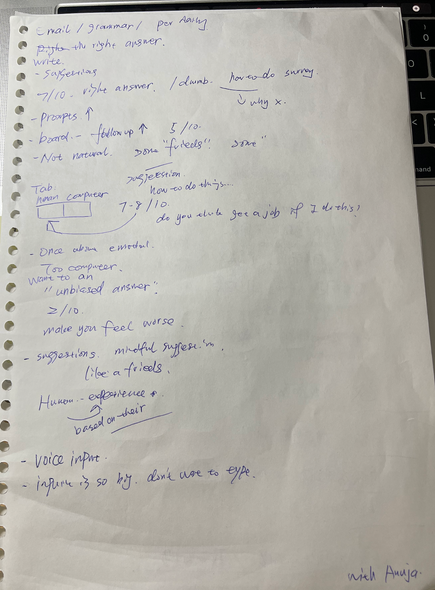 - mail / grammar /
the right answer.
write.
- Suggestions
7/10. right answer. /dumb. how to do survey.
↓ why x.
- Prompts ↑
- board. - follow up ↑ 5/10.
- Not natural. some "frieds".
suggestion
how to do things...
Tab.
human computer
7-8/10.
do you think get a job if I do this?
- Once above
Too computer.
want to an
"unbiased answer".
2/10.
make you feel worse.
- suggestions. mindful
like a frieds.
Human. - experience
based on their
- voice input.
- is so big. don't to type.
with Anuja.